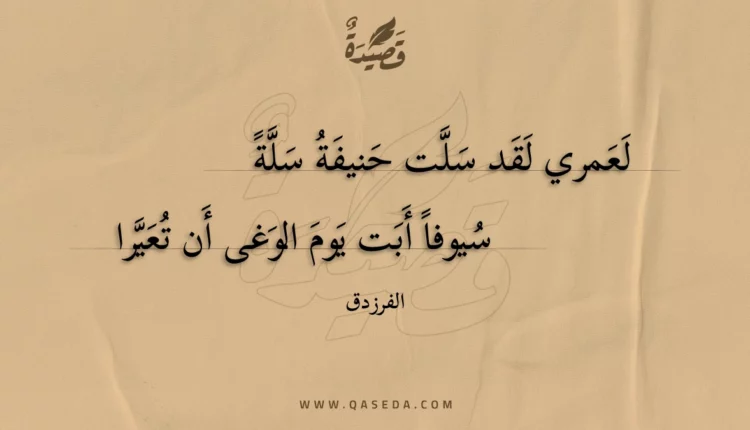 قَصِيدَةٌ
لَعَمري لَقَد سَلَّت حَنيفَةُ سَلَّةً
سُيوفاً أَبَت يَومَ الوَغى أَن تُعَيَّرا
الفرزدق
WWW.QASEDA.COM